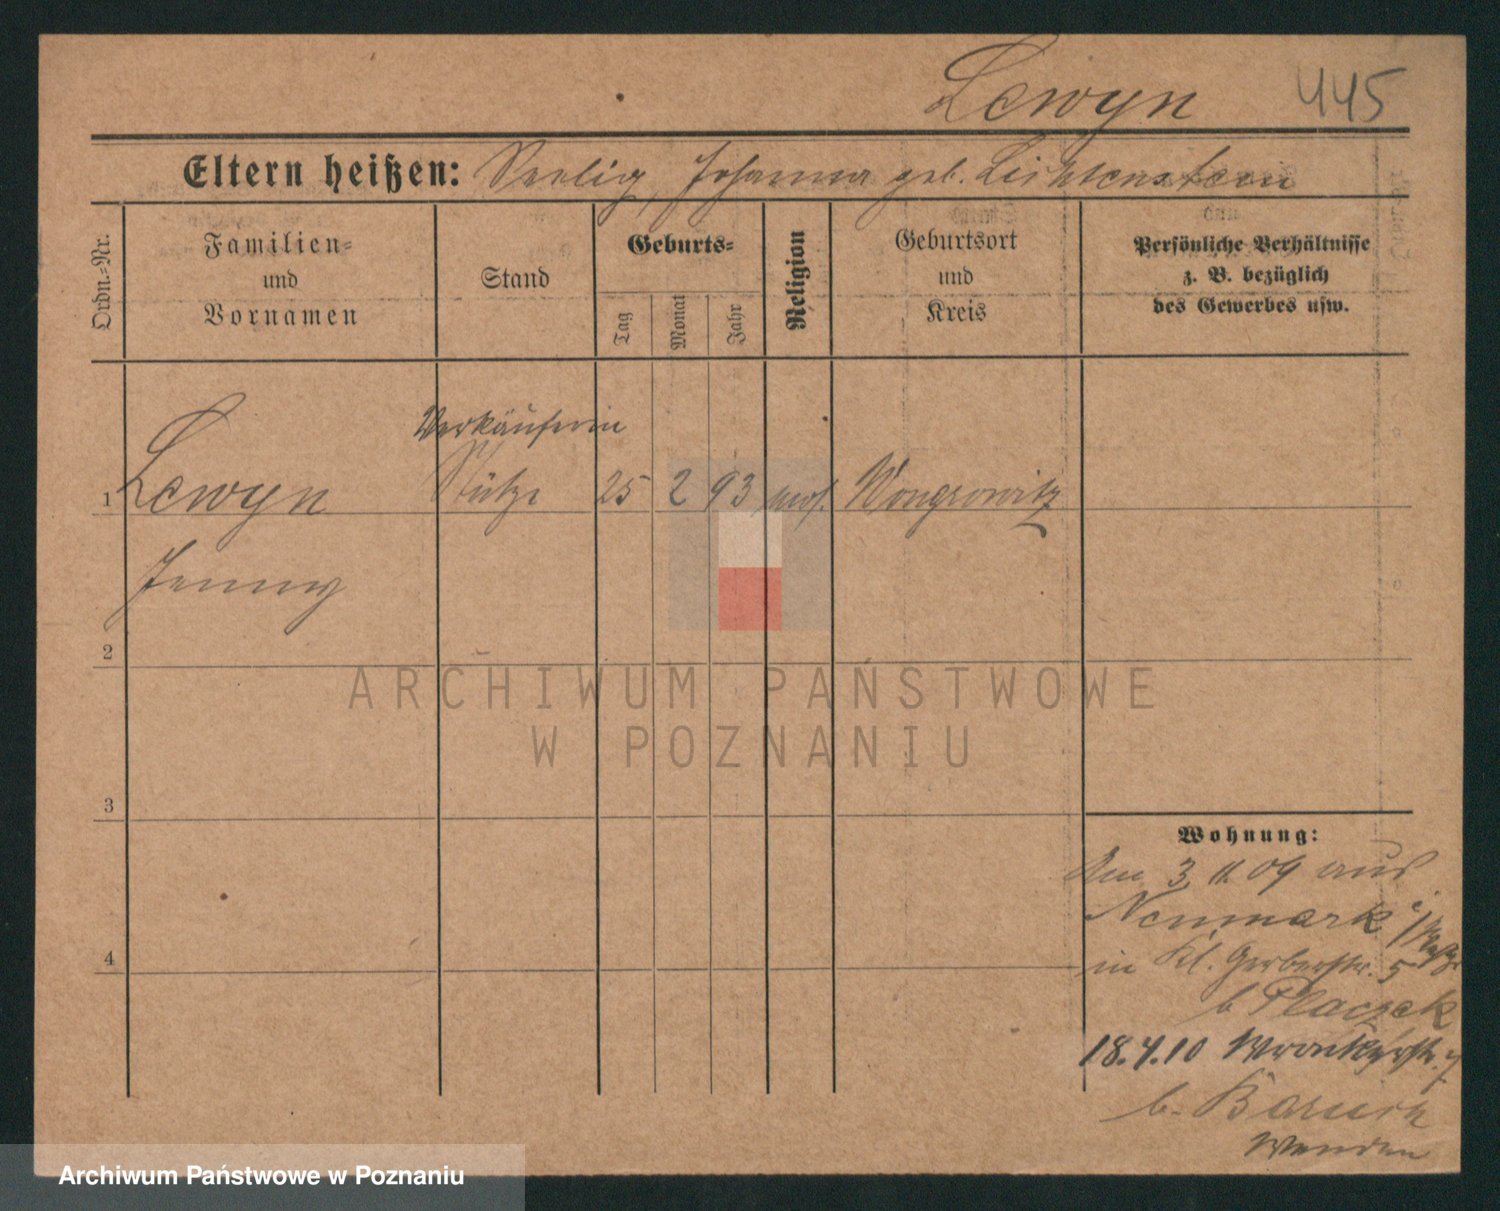 Lewyn 445
Eltern heißen: Seelig, Johanna geb. Lichtenstein
Ordn.-Nr.
Familien-
und
Vornamen
Stand
Geburts-
Tag
Monat
Jahr
Religion
Geburtsort
und
Kreis
Persönliche Verhältnisse
z. B. bezüglich
des Gewerbes usw.
Verkäuferin
1 Lewyn Stütze 25 2 93 mos. Wongrowitz
Jenny
2
3
4
Wohnung:
Am 3 11 09 aus
Neumark
in Kl. Gerberstr. 5
b Placzek
18.4.10 Wronkerstr. 7
b. Baruch
Wenden
ARCHIWUM PAŃSTWOWE
W POZNANIU
Archiwum Państwowe w Poznaniu